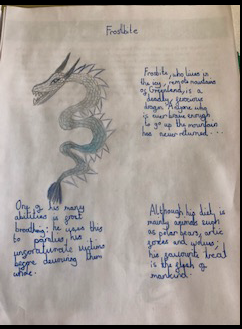 Frostbite
Frostbite, who lives in
the icy, remote mountains
of Greenland, is a
deadly, ferocious
dragon. Anyone who
is ever brave enough
to go up the mountain
has never returned...
One of his many
abilities is frost
breathing: he uses this
to paralyse his
unfortunate victims
before devouring them
whole.
Although his diet is
mainly animals such
as polar bears, artic
foxes and wolves;
his favourite treat
is the flesh of
mankind.